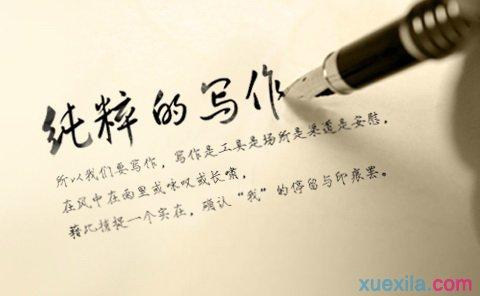 纯粹的写作
所以我们要写作，写作是工具是场所是渠道是安慰，
在风中在雨里或咏叹或长啸，
藉此捕捉一个实在，确认“我”的停留与印痕罢。
xuexila.com